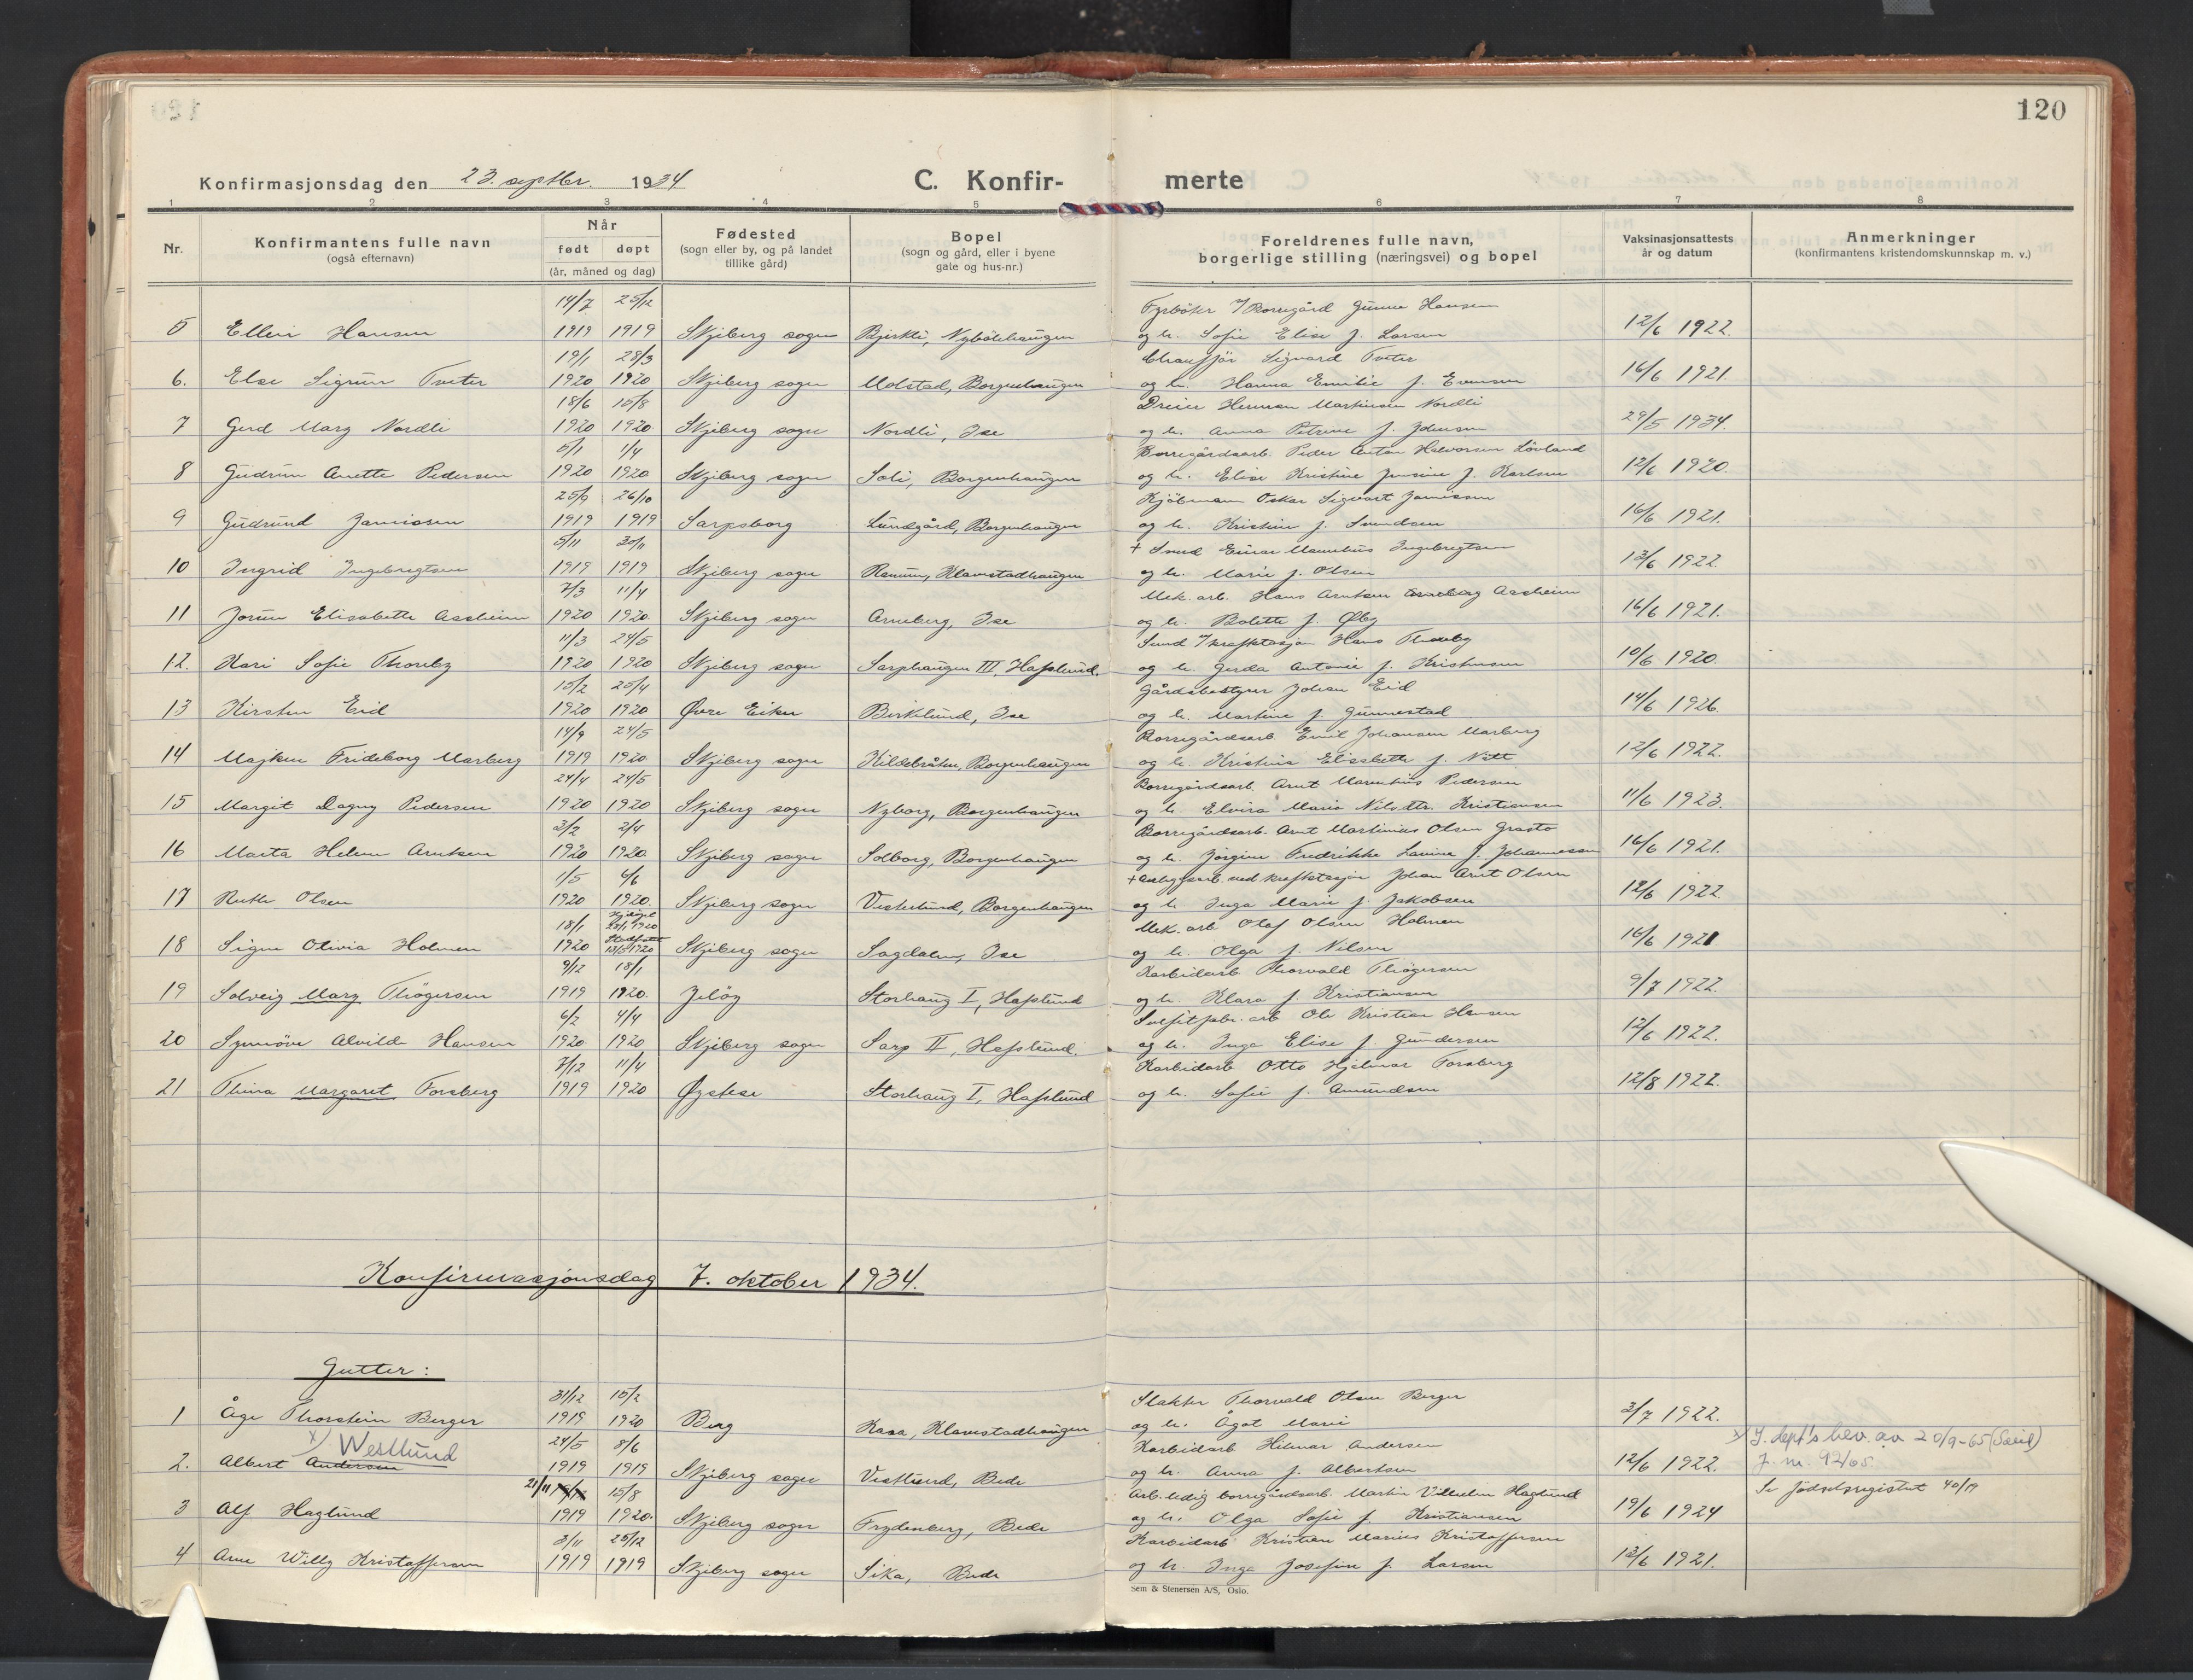 120
Konfirmasjonsdag den 23. septbr. 1934
C. Konfir- merte
1 2 3 4 5 6 7 8
Nr.
Konfirmantens fulle navn
(også efternavn)
Når
født døpt
(år, måned og dag)
Fødested
(sogn eller by, og på landet
tillike gård)
Bopel
(sogn og gård, eller i byene
gate og hus-nr.)
Foreldrenes fulle navn,
borgerlige stilling (næringsvei) og bopel
Vaksinasjonsattests
år og datum
Anmerkninger
(konfirmantens kristendomskunnskap m. v.)
14/7 25/12 Fyrbøter v/Borregård Gunnar Hansen
5 Ellen Hansen 1919 1919 Skjeberg sogn Bjerkli, Nybölehaugen og h. Sofie Elise f. Larsen 12/6 1922.
19/1 28/3 Chauffør Sigvard Tveter
6. Else Sigrun Tveter 1920 1920 Skjeberg sogn Molstad, Borgenhaugen og h. Hanna Emilie f. Evensen 16/6 1921.
18/6 15/8 Dreier Herman Martinsen Nordli
7 Gerd Mary Nordli 1920 1920 Skjeberg sogn Nordli, Ise og h. Anna Petrine f. Johnsen 29/5 1934.
5/1 1/4 Borregårdsarb. Peder Anton Halvorsen Løvland
8 Gudrun Anette Pedersen 1920 1920 Skjeberg sogn Soli, Borgenhaugen og h. Elise Kristine Jensine f. Karlsen 12/6 1920.
25/9 26/10 Kjøbmann Oskar Sigvart Jamissen
9 Gudrund Jamissen 1919 1919 Sarpsborg Lundgård, Borgenhaugen og h. Kristine f. Svendsen 16/6 1921.
5/11 30/11 + Smed Einar Marentius Ingebregtsen
10 Ingrid Ingebregtsen 1919 1919 Skjeberg sogn Ranum, Klavestadhaugen og h. Marie f. Olsen 13/6 1922.
7/3 11/4 Mek. arb. Hans Arntsen Arneberg Aasheim
11 Jorun Elisabeth Aasheim 1920 1920 Skjeberg sogn Arneberg, Ise og h. Bolette f. Øby 16/6 1921.
11/3 24/5 Smed v/kraftstasjon Hans Thoreby
12. Kari Sofie Thoreby 1920 1920 Skjeberg sogn Sarphaugen III, Hafslund. og h. Gerda Antonie f. Kristensen 10/6 1920.
15/2 25/4 Gårdsbestyrer Johan Eid
13 Kirsten Eid 1920 1920 Øvre Eiker Birkelund, Ise og h. Martine f. Gunnestad 14/6 1926.
14/9 24/5 Borregårdsarb. Emil Johansen Marberg
14 Majken Frideborg Marberg 1919 1920 Skjeberg sogn Kildebråten, Borgenhaugen og h. Kristine Elisabeth f. Nitt 12/6 1922.
24/4 24/5 Borregårdsarb. Arnt Marentius Pedersen
15 Margit Dagny Pedersen 1920 1920 Skjeberg sogn Nyborg, Borgenhaugen og h. Elvira Marie Nilsdtr. Kristiansen 11/6 1923.
3/2 2/4 Borregårdsarb. Arnt Martinius Olsen Grasto
16 Marta Helene Arntsen 1920 1920 Skjeberg sogn Solborg, Borgenhaugen og h. Jørgine Fredrikke Lavine f. Johannessen 16/6 1921.
1/5 4/6 + anleggsarb. ved kraftstasjon Johan Arnt Olsen
17 Ruth Olsen 1920 1920. Skjeberg sogn Vesterlund, Borgenhaugen og h. Inga Marie f. Jakobsen 12/6 1922.
18/1 Hjdøpt 23/1 1920 Mek. arb. Olaf Olsen Holmen
18 Signe Olivia Holmen 1920 Stadfestet 13/5 1920 Skjeberg sogn Sagdalen, Ise og h. Olga f. Nilsen 16/6 1921
9/12 18/1 Karbidarb. Thorvald Thøgersen
19 Solveig Mary Thøgersen 1919 1920. Jeløy Storhaug I, Hafslund og h. Klara f. Kristiansen 9/7 1922.
6/2 4/4 Sulfitfabr. arb. Ole Kristian Hansen
20 Synnøve Alvilde Hansen 1920 1920 Skjeberg sogn Sarp II, Hafslund. og h. Inga Elise f. Gundersen 12/6 1922.
7/12 11/4 Karbidarb. Otto Hjalmar Forsberg
21 Thina Margaret Forsberg 1919 1920 Øystese Storhaug I, Hafslund og h. Sofie f. Amundsen 12/8 1922.
Konfirmasjonsdag 7. oktober 1934.
Gutter:
31/12 15/2 Slakter Thorvald Olsen Berger
1 Åge Thorstein Berger 1919 1920 Berg Kasa, Klavestadhaugen og h. Ågot Marie 3/7 1922.
x) Westlund 24/5 8/6 Karbidarb. Hilmar Andersen x) J. dept's bev. av 20/9-65 (Sœid)
2. Albert Andersen 1919 1919 Skjeberg sogn Vestlund, Bede og h. Anna f. Albertsen 12/6 1922. J. nr. 92/65.
21/11 15/8 Arb. ledig borregårdsarb. Martin Vilhelm Haglund Se fødselsregistret 40/19
3 Alf Haglund 1919 1920. Skjeberg sogn Frydenberg, Bede og h. Olga Sofie f. Kristiansen 19/6 1924
3/11 25/12 Karbidarb. Kristian Marius Kristoffersen
4 Arne Willy Kristoffersen 1919 1919 Skjeberg sogn Sika, Bede og h. Inga Josefine f. Larsen 13/6 1921.
Sem & Stenersen A/S, Oslo.